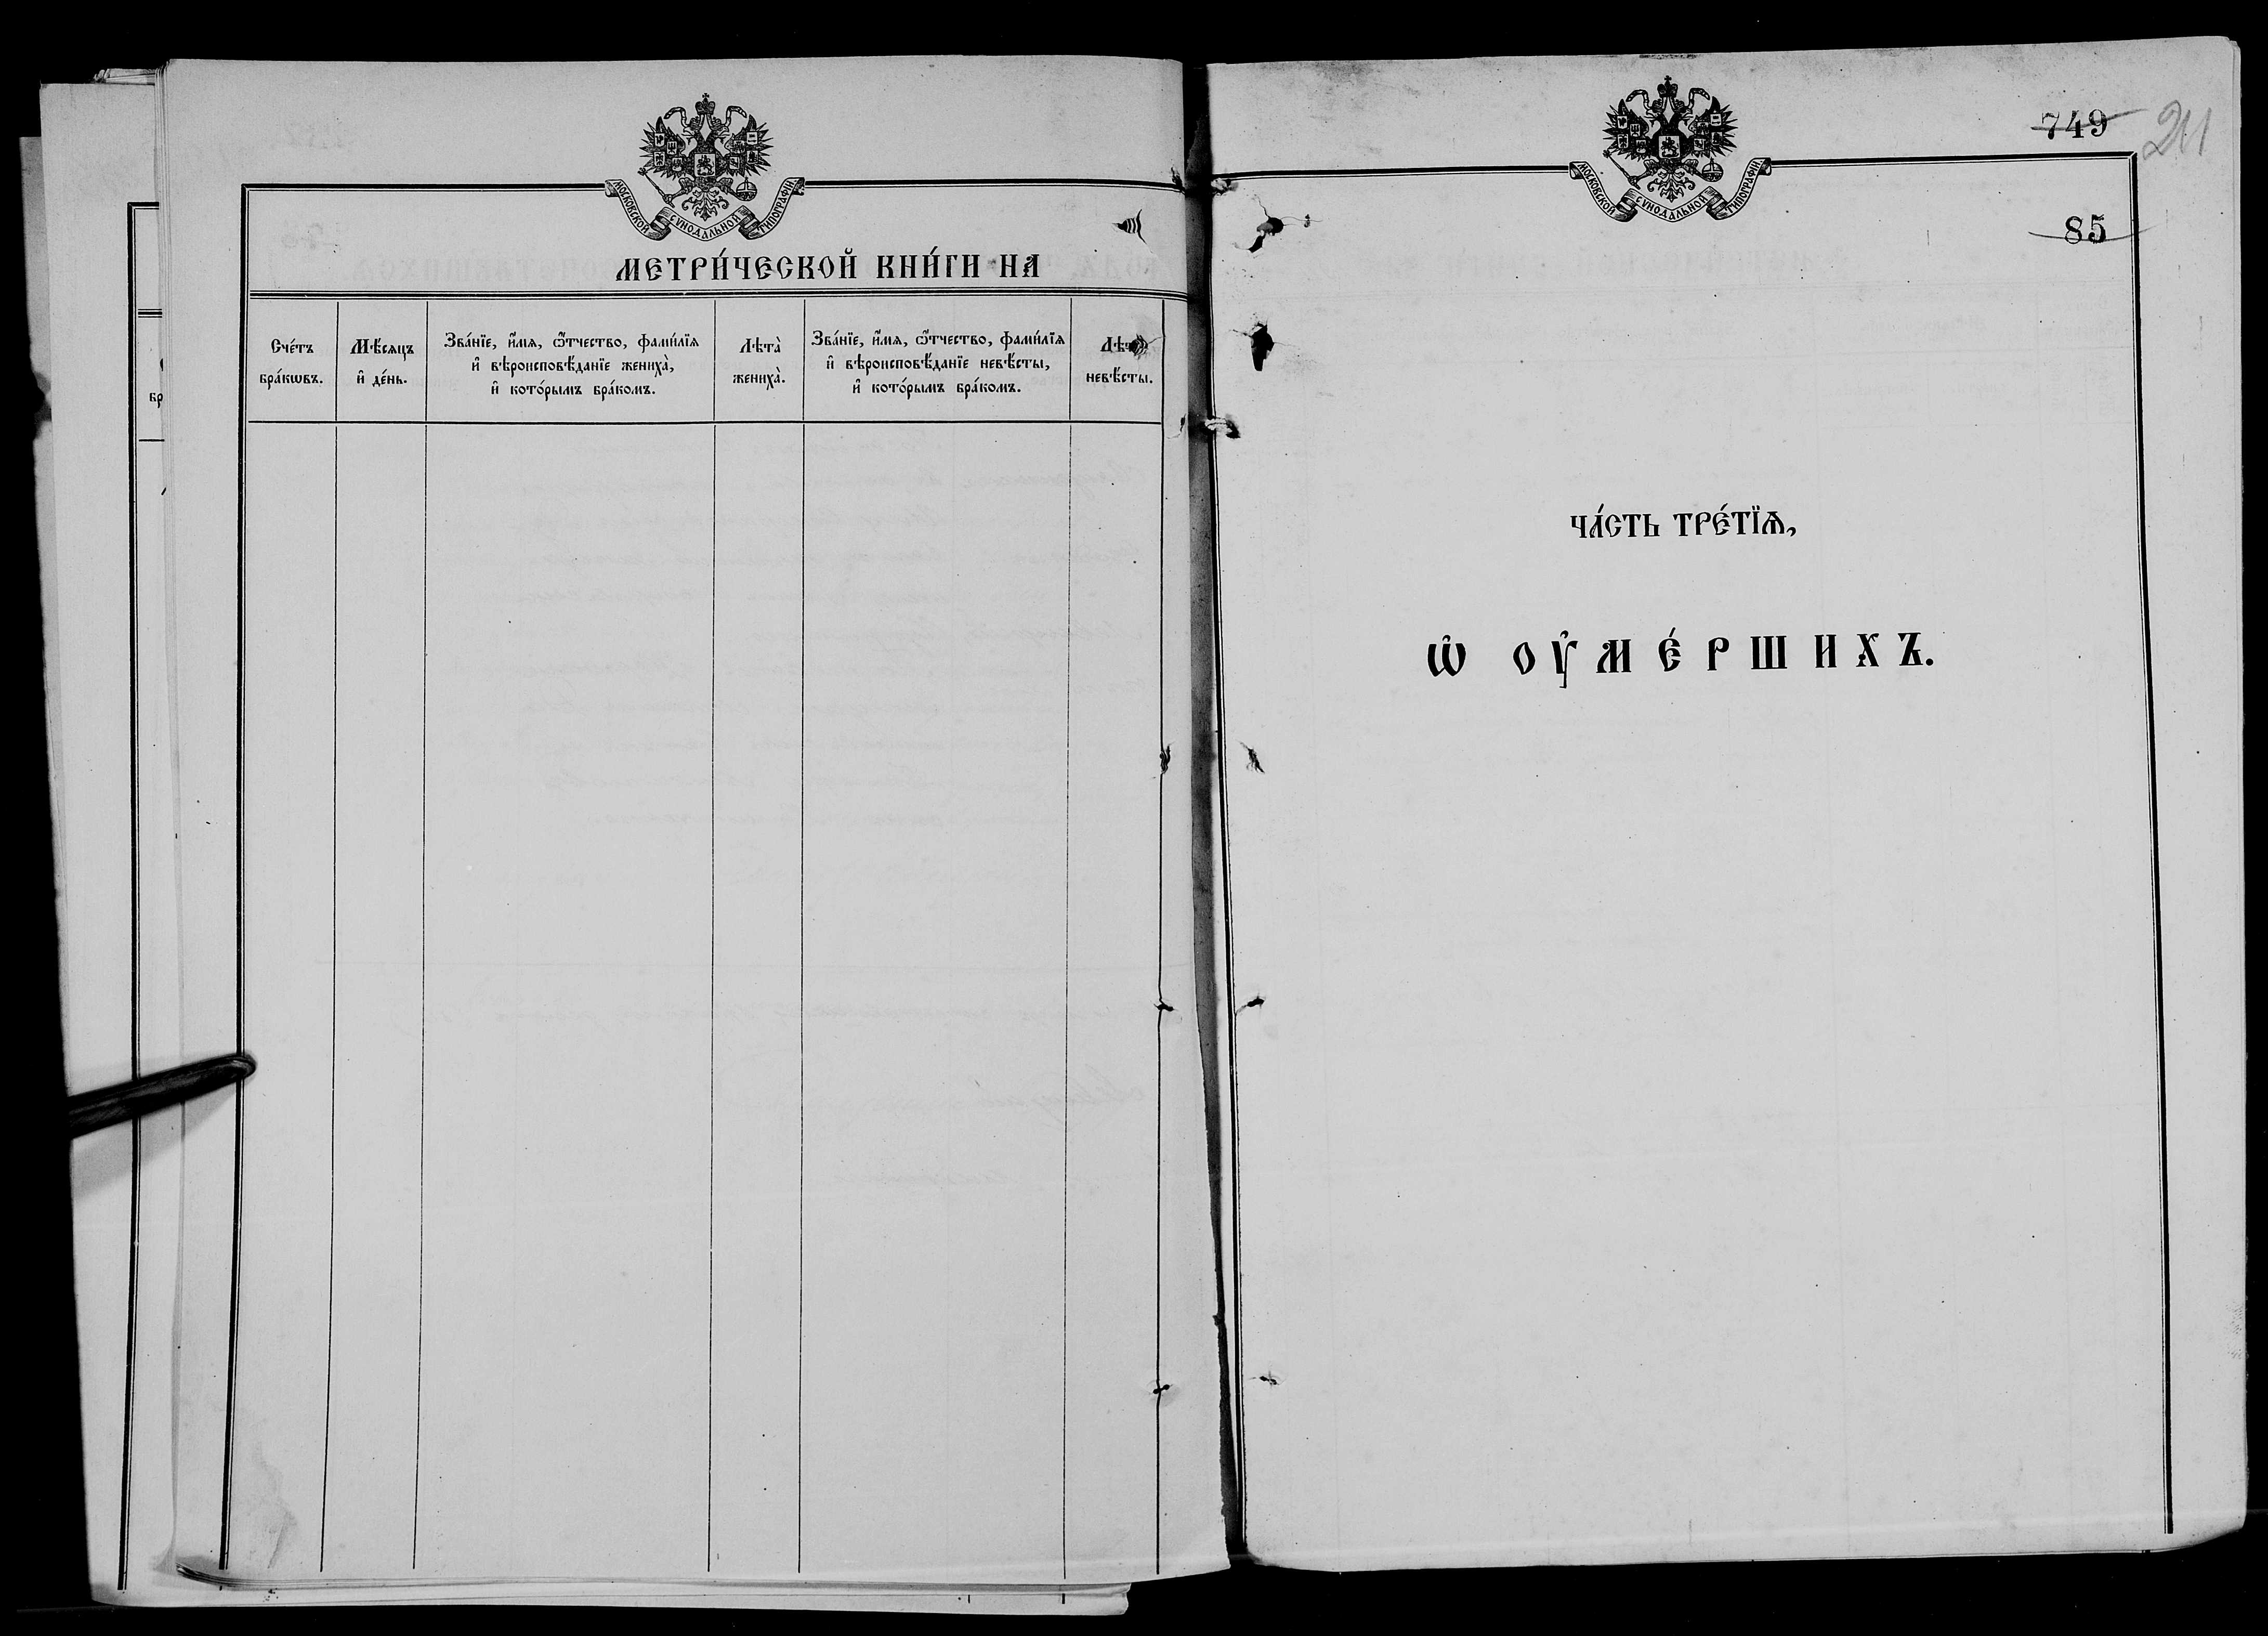 МОСКОВСКОЙ СѴНОДАЛЬНОЙ ТИПОГРАФІИ
МЕТРИ́ЧЕСКОЙ КНИ́ГИ НА
Сче́тъ бра́кѡвъ.
Мѣ́сяцъ и҆ де́нь.
Зва́нїе, и҆́мѧ, ѻ҆́тчество, фами́лїѧ
и҆ вѣроисповѣ́данїе жениха̀,
и҆ кото́рымъ бра́комъ.
Лѣта̀ жениха̀.
Зва́нїе, и҆́мѧ, ѻ҆́тчество, фами́лїѧ
и҆ вѣроисповѣ́данїе невѣ́сты,
и҆ кото́рымъ бра́комъ.
невѣ́сты.
МОСКОВСКОЙ СѴНОДАЛЬНОЙ ТИПОГРАФІИ
749
211
85
ЧА́СТЬ ТРЕ́ТЇѦ,
Ѡ҆ ОУ҆МЕ́РШИХЪ.